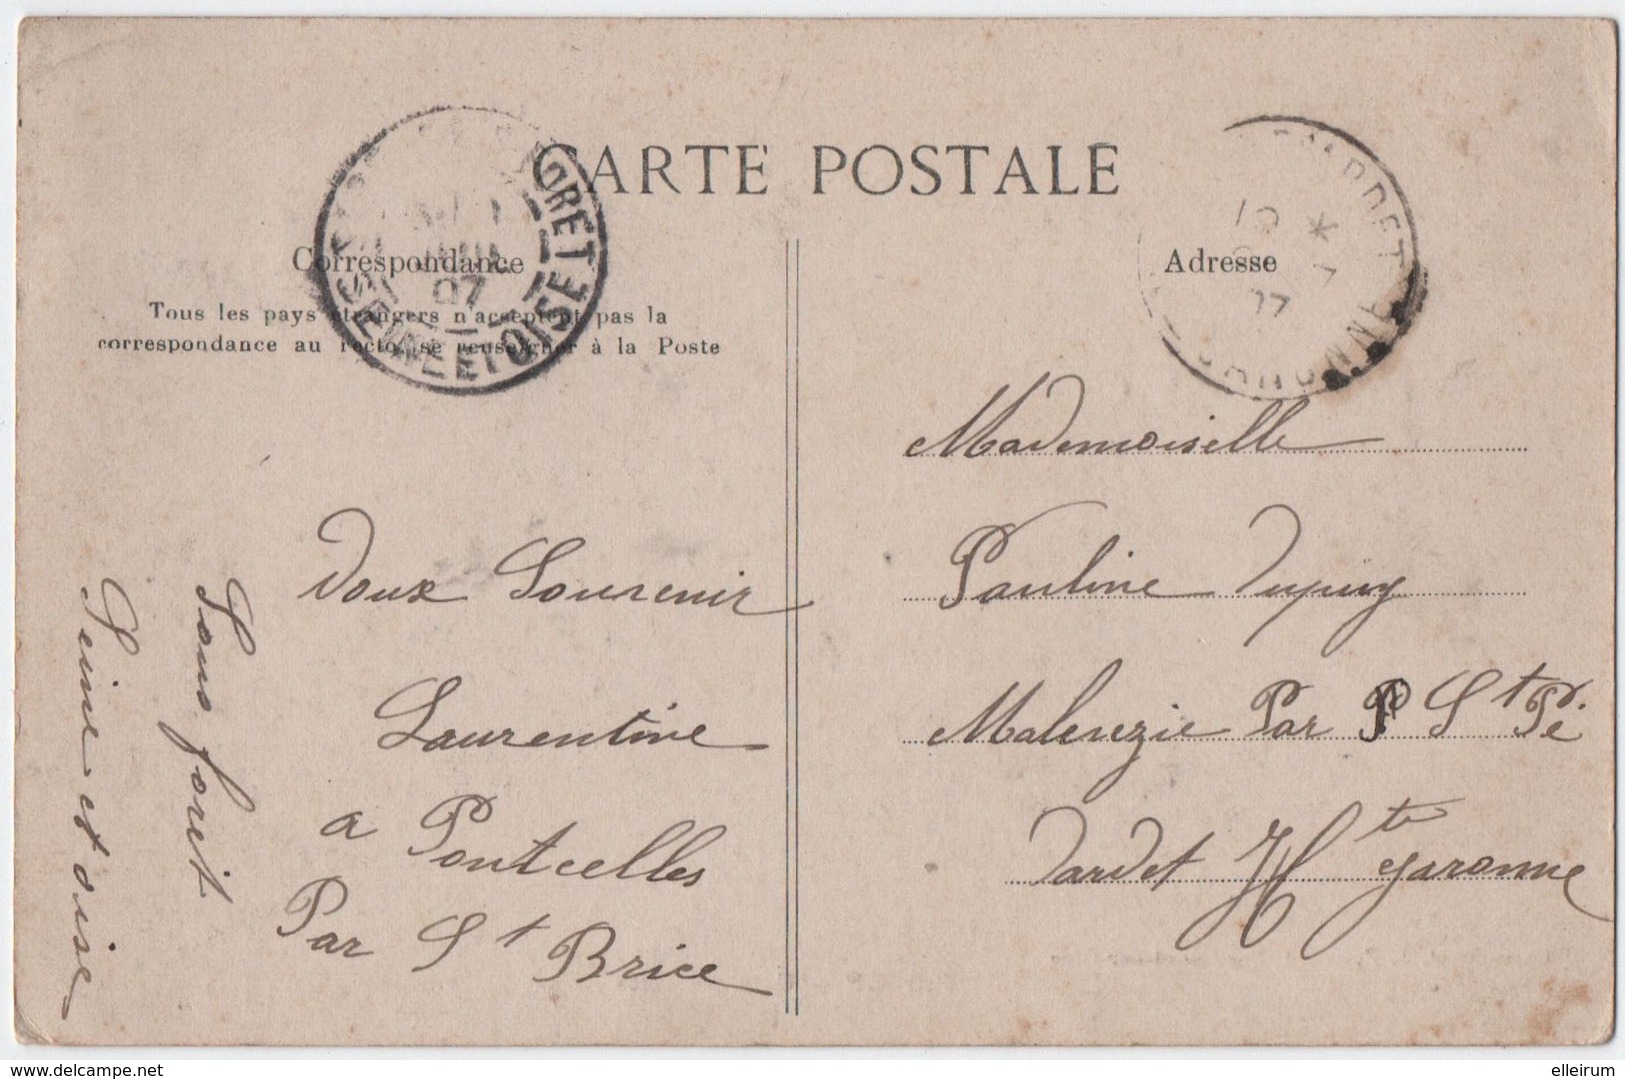 CARTE POSTALE
Correspondance
Tous les pays étrangers n'acceptent pas la
correspondance au recto, se renseigner à la Poste
FORET
07
SEINE ET OISE
Doux Souvenir
Laurentine
a Pontcelles
Par St Brice
Sous foret
Seine et oise
Adresse
GARONNE
Mademoiselle
Pauline Dupuy
Par St Pé
Dardet Hte garonne
www.delcampe.net
elleirum